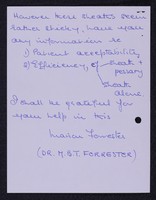 However these sheaths seem
rather sticky, have you
any information re
1) Patient acceptability
2) Efficiency, of sheath +
pessary
sheath
alone
I shall be grateful for
your help in this
Marion Forrester
(DR. M. S. T. FORRESTER)